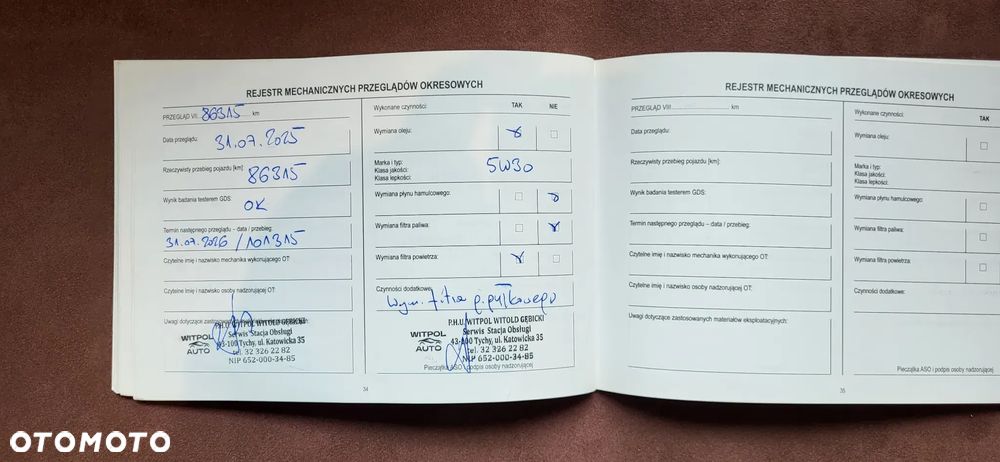 REJESTR MECHANICZNYCH PRZEGLĄDÓW OKRESOWYCH
PRZEGLĄD VII: 86315 km
Data przeglądu: 31.07.2025
Rzeczywisty przebieg pojazdu [km]: 86315
Wynik badania testerem GDS: OK
Termin następnego przeglądu – data / przebieg:
31.07.2026 / 101315
Czytelne imię i nazwisko mechanika wykonującego OT:
Czytelne imię i nazwisko osoby nadzorującej OT:
Uwagi dotyczące
WITPOL AUTO
P.H.U. WITPOL WITOLD GĘBICKI
Serwis Stacja Obsługi
43-100 Tychy, ul. Katowicka 35
tel. 32 326 22 82
NIP 652-000-34-85
Wykonane czynności: TAK NIE
Wymiana oleju:
Marka i typ: 5W30
Klasa jakości:
Klasa lepkości:
Wymiana płynu hamulcowego:
Wymiana filtra paliwa:
Wymiana filtra powietrza:
Czynności dodatkowe:
Wym. filtra p.pyłkowego
WITPOL AUTO
P.H.U. WITPOL WITOLD GĘBICKI
Serwis Stacja Obsługi
43-100 Tychy, ul. Katowicka 35
tel. 32 326 22 82
NIP 652-000-34-85
Pieczątka ASO i podpis osoby nadzorującej
34
REJESTR MECHANICZNYCH PRZEGLĄDÓW OKRESOWYCH
PRZEGLĄD VIII: km
Data przeglądu:
Rzeczywisty przebieg pojazdu [km]:
Wynik badania testerem GDS:
Termin następnego przeglądu – data / przebieg:
Czytelne imię i nazwisko mechanika wykonującego OT:
Czytelne imię i nazwisko osoby nadzorującej OT:
Uwagi dotyczące zastosowanych materiałem eksploatacyjnych:
Wykonane czynności: TAK
Wymiana oleju:
Marka i typ:
Klasa jakości:
Klasa lepkości:
Wymiana płynu hamulcowego:
Wymiana filtra paliwa:
Wymiana filtra powietrza:
Czynności dodatkowe:
Pieczątka ASO i podpis osoby nadzorującej
35
OTOMOTO